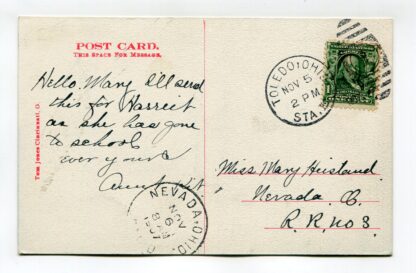 POST CARD.
THIS SPACE FOR MESSAGE.
Hello Mary I'll send
this for Harriet
as she has gone
to school
ever yours
Aunt
Tom Jones Cincinnati, O.
TOLEDO, OHIO
NOV 5
2 PM
STA.
Miss Mary Heistand
Nevada O.
R.R. no 3.
NEVADA, OHIO
NOV
6
8 AM
1907